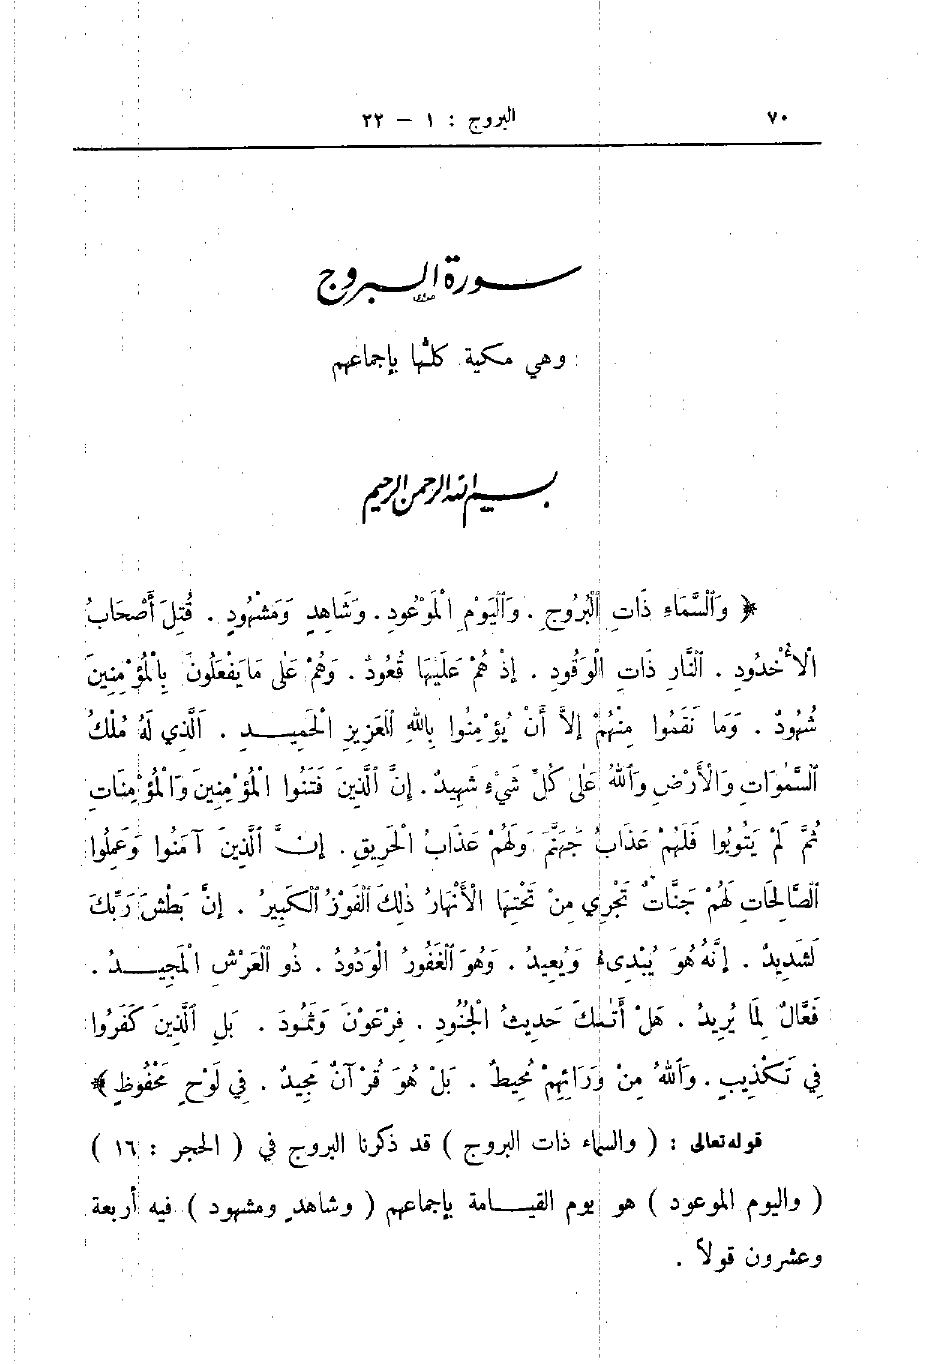 ٧٠ البروج : ١ - ٢٢
سورة البروج
وهي مكية كلها بإجماعهم
بسم الله الرحمن الرحيم
﴿ وَٱلسَّمَاءِ ذَاتِ ٱلْبُرُوجِ . وَٱلْيَوْمِ الْمَوْعُودِ . وَشَاهِدٍ وَمَشْهُودٍ . قُتِلَ أَصْحَابُ
الْأُخْدُودِ . ٱلنَّارِ ذَاتِ الْوَقُودِ . إِذْ هُمْ عَلَيْهَا قُعُودٌ . وَهُمْ عَلَى مَا يَفْعَلُونَ بِالْمُؤْمِنِينَ
شُهُودٌ . وَمَا نَقَمُوا مِنْهُمْ إِلَّا أَنْ يُؤْمِنُوا بِاللهِ ٱلْعَزِيزِ الْحَمِيدِ . ٱلَّذِي لَهُ مُلْكُ
ٱلسَّمٰوَاتِ وَالْأَرْضِ وَٱللهُ عَلَى كُلِّ شَيْءٍ شَهِيدٌ . إِنَّ ٱلَّذِينَ فَتَنُوا الْمُؤْمِنِينَ وَالْمُؤْمِنَاتِ
ثُمَّ لَمْ يَتُوبُوا فَلَهُمْ عَذَابُ جَهَنَّمَ وَلَهُمْ عَذَابُ الْحَرِيقِ . إِنَّ ٱلَّذِينَ آمَنُوا وَعَمِلُوا
ٱلصَّالِحَاتِ لَهُمْ جَنَّاتٌ تَجْرِي مِنْ تَحْتِهَا الْأَنْهَارُ ذٰلِكَ ٱلْفَوْزُ ٱلْكَبِيرُ . إِنَّ بَطْشَ رَبِّكَ
لَشَدِيدٌ . إِنَّهُ هُوَ يُبْدِىءُ وَيُعِيدُ . وَهُوَ ٱلْغَفُورُ الْوَدُودُ . ذُو ٱلْعَرْشِ الْمَجِيدُ .
فَعَّالٌ لِمَا يُرِيدُ . هَلْ أَتٰىكَ حَدِيثُ الْجُنُودِ . فِرْعَوْنَ وَثَمُودَ . بَلِ ٱلَّذِينَ كَفَرُوا
فِي تَكْذِيبٍ . وَٱللهُ مِنْ وَرَائِهِمْ مُحِيطٌ . بَلْ هُوَ قُرْآنٌ مَجِيدٌ . فِي لَوْحٍ مَحْفُوظٍ ﴾
قوله تعالى : ( والسماء ذات البروج ) قد ذكرنا البروج في ( الحجر : ١٦ )
( واليوم الموعود ) هو يوم القيامة بإجماعهم ( وشاهدٍ ومشهود ) فيه أربعة
وعشرون قولاً .